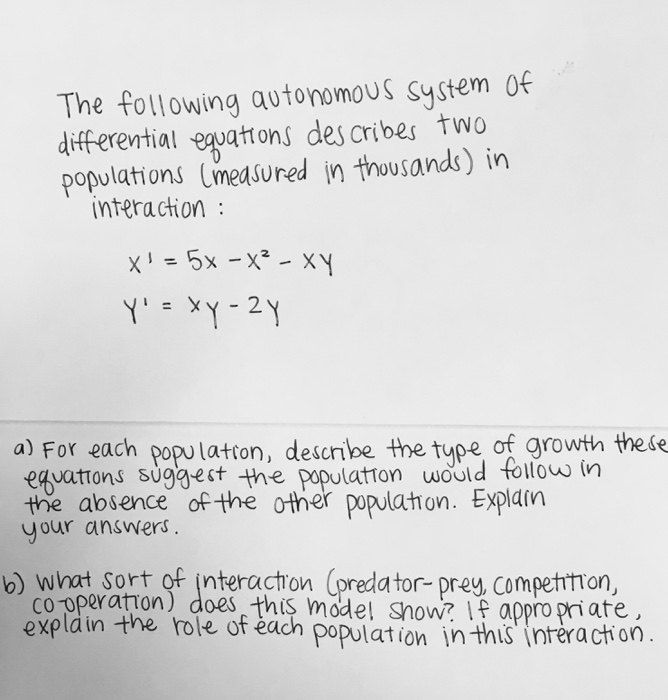 The following autonomous system of
differential equations describes two
populations (measured in thousands) in
interaction :
x' = 5x - x² - xy
y' = xy - 2y
a) For each population, describe the type of growth these
equations suggest the population would follow in
the absence of the other population. Explain
your answers.
b) What sort of interaction (predator-prey, competition,
co-operation) does this model show? If appropriate,
explain the role of each population in this interaction.